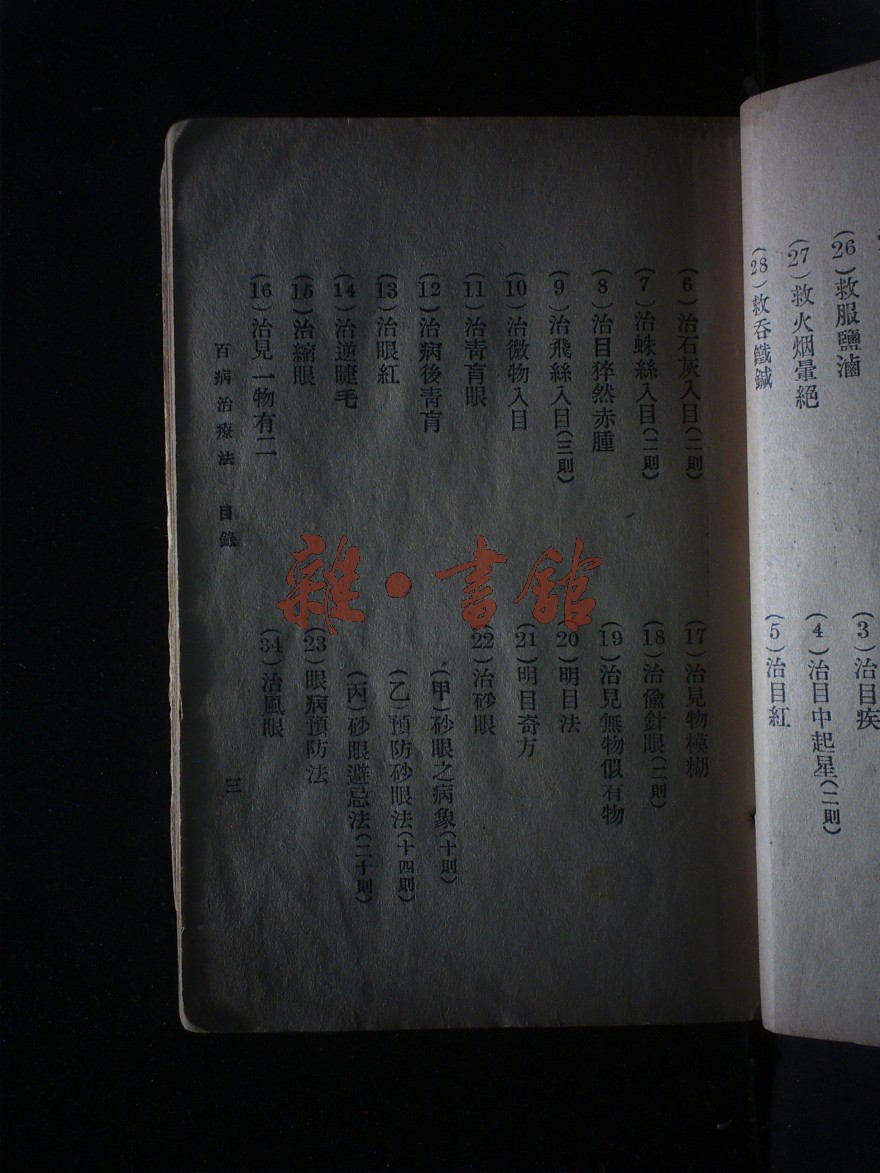 (26)救服鹽滷
(27)救火烟暈絕
(28)救吞鐵鍼
(3)治目疾
(4)治目中起星(二則)
(5)治目紅
(6)治石灰入目(二則)
(7)治蛛絲入目(二則)
(8)治目猝然赤腫
(9)治飛絲入目(三則)
(10)治微物入目
(11)治靑肓眼
(12)治病後靑肓
(13)治眼紅
(14)治逆睫毛
(15)治縮眼
(16)治見一物有二
(17)治見物模糊
(18)治偸針眼(二則)
(19)治見無物似有物
(20)明目法
(21)明目奇方
(22)治砂眼
(甲)砂眼之病象(十則)
(乙)預防砂眼法(十四則)
(丙)砂眼避忌法(二十則)
(23)眼病預防法
(34)治風眼
百病治療法 目錄
三
雜·書館